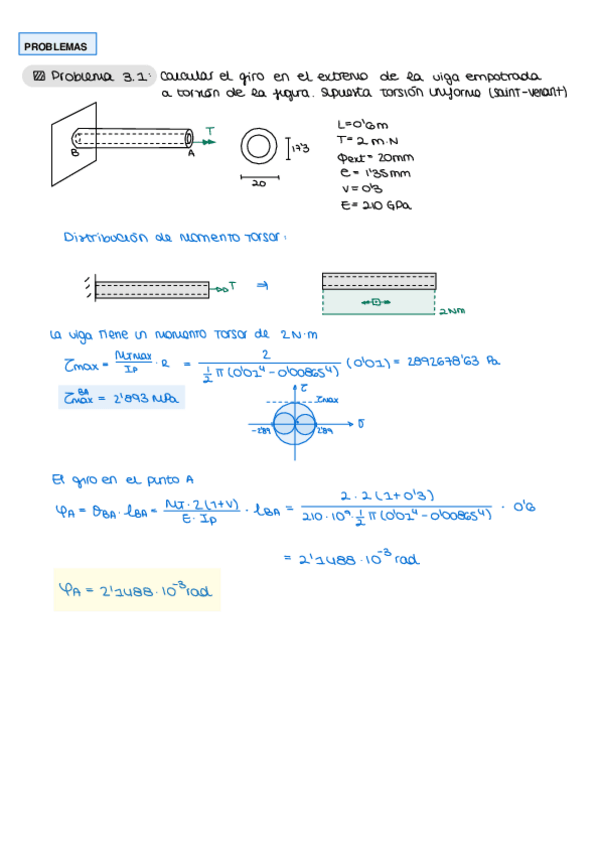 PROBLEMAS
Problema 3.1: Calcular el giro en el extremo de la viga empotrada
a torsión de la figura. Supuesta torsión uniforme (Saint-Venant)
B A T
17'3
20
L=0'6m
T= 2 m·N
Φext = 20mm
e = 1'35mm
V = 0'3
E= 210 GPa
Distribución de momento torsor:
T ⇒
2Nm
La viga tiene un momento torsor de 2N·m
τmax = MTmax/Ip · R = 2 / (1/2 π (0'01⁴ - 0'00865⁴)) (0'01) = 2892678'63 Pa
τmax^BA = 2'893 MPa
τ
τmax
-2'89 2'89 σ
El giro en el punto A
φA = θBA · lBA = MT · 2(1+V) / E · Ip · lBA = 2 · 2(1+0'3) / 210 · 10⁹ · 1/2 π (0'01⁴ - 0'00865⁴) · 0'6
= 2'1488 · 10⁻³ rad
φA = 2'1488 · 10⁻³ rad